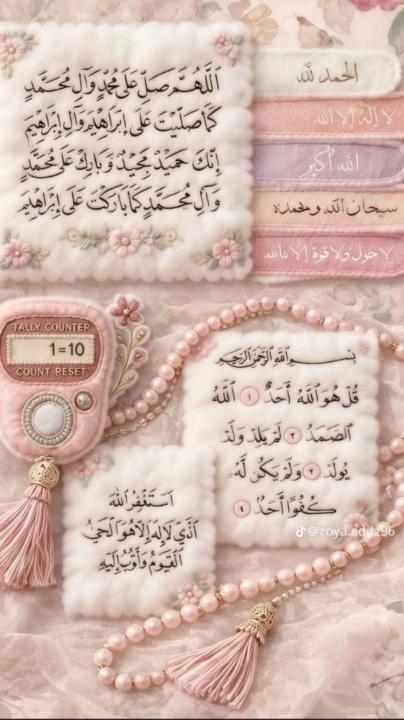 اللَّهُمَّ صَلِّ عَلَى مُحَمَّدٍ وَآلِ مُحَمَّدٍ
كَمَا صَلَّيْتَ عَلَى إِبْرَاهِيمَ وَآلِ إِبْرَاهِيمَ
إِنَّكَ حَمِيدٌ مَجِيدٌ وَبَارِكْ عَلَى مُحَمَّدٍ
وَآلِ مُحَمَّدٍ كَمَا بَارَكْتَ عَلَى إِبْرَاهِيمَ
الحمد لله
لا إله إلا الله
الله أكبر
سبحان الله وبحمده
لا حول ولا قوة إلا بالله
TALLY COUNTER
1=10
COUNT RESET
بِسْمِ اللَّهِ الرَّحْمَنِ الرَّحِيمِ
قُلْ هُوَ اللَّهُ أَحَدٌ ١ اللَّهُ
الصَّمَدُ ٢ لَمْ يَلِدْ وَلَمْ
يُولَدْ ٣ وَلَمْ يَكُن لَّهُ
كُفُوًا أَحَدٌ ٤
أستغفر الله
الَّذِي لَا إِلَهَ إِلَّا هُوَ الْحَيُّ
الْقَيُّومُ وَأَتُوبُ إِلَيْهِ
@zoya.editz96